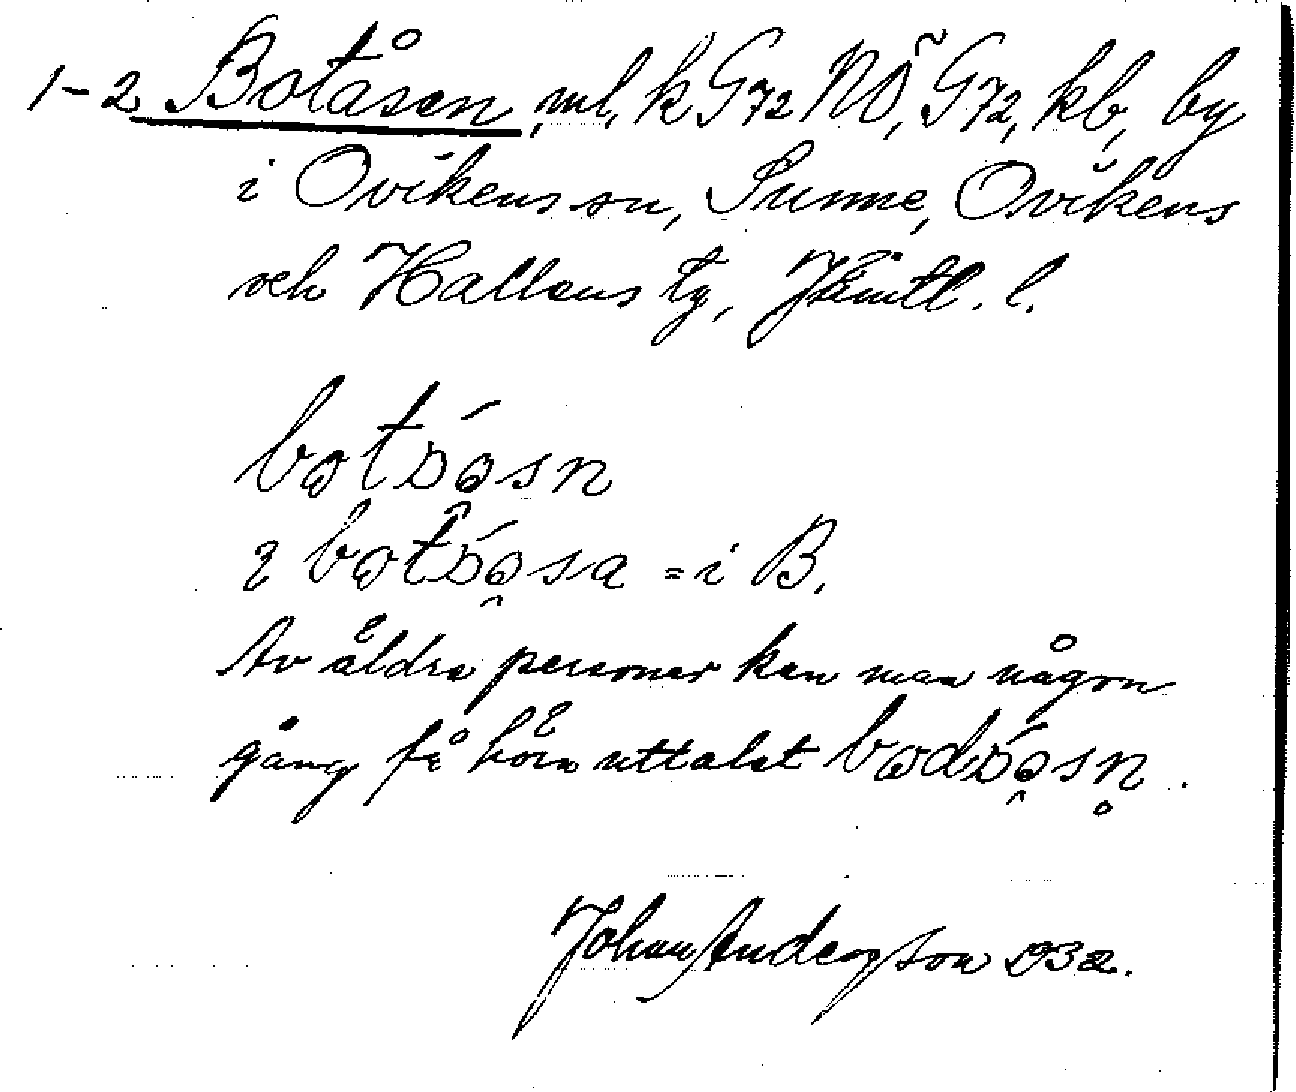 1-2 Botåsen, ml, k G72 NÖ, G72, kb, by
i Ovikens sn, Sunne, Ovikens
och Hallens tg, Jämtl. l.
botòósn
i botòósa = i B.
Av äldre personer kan man någon
gång få höra uttalet bodòósn.
Johan Anderson 1932.